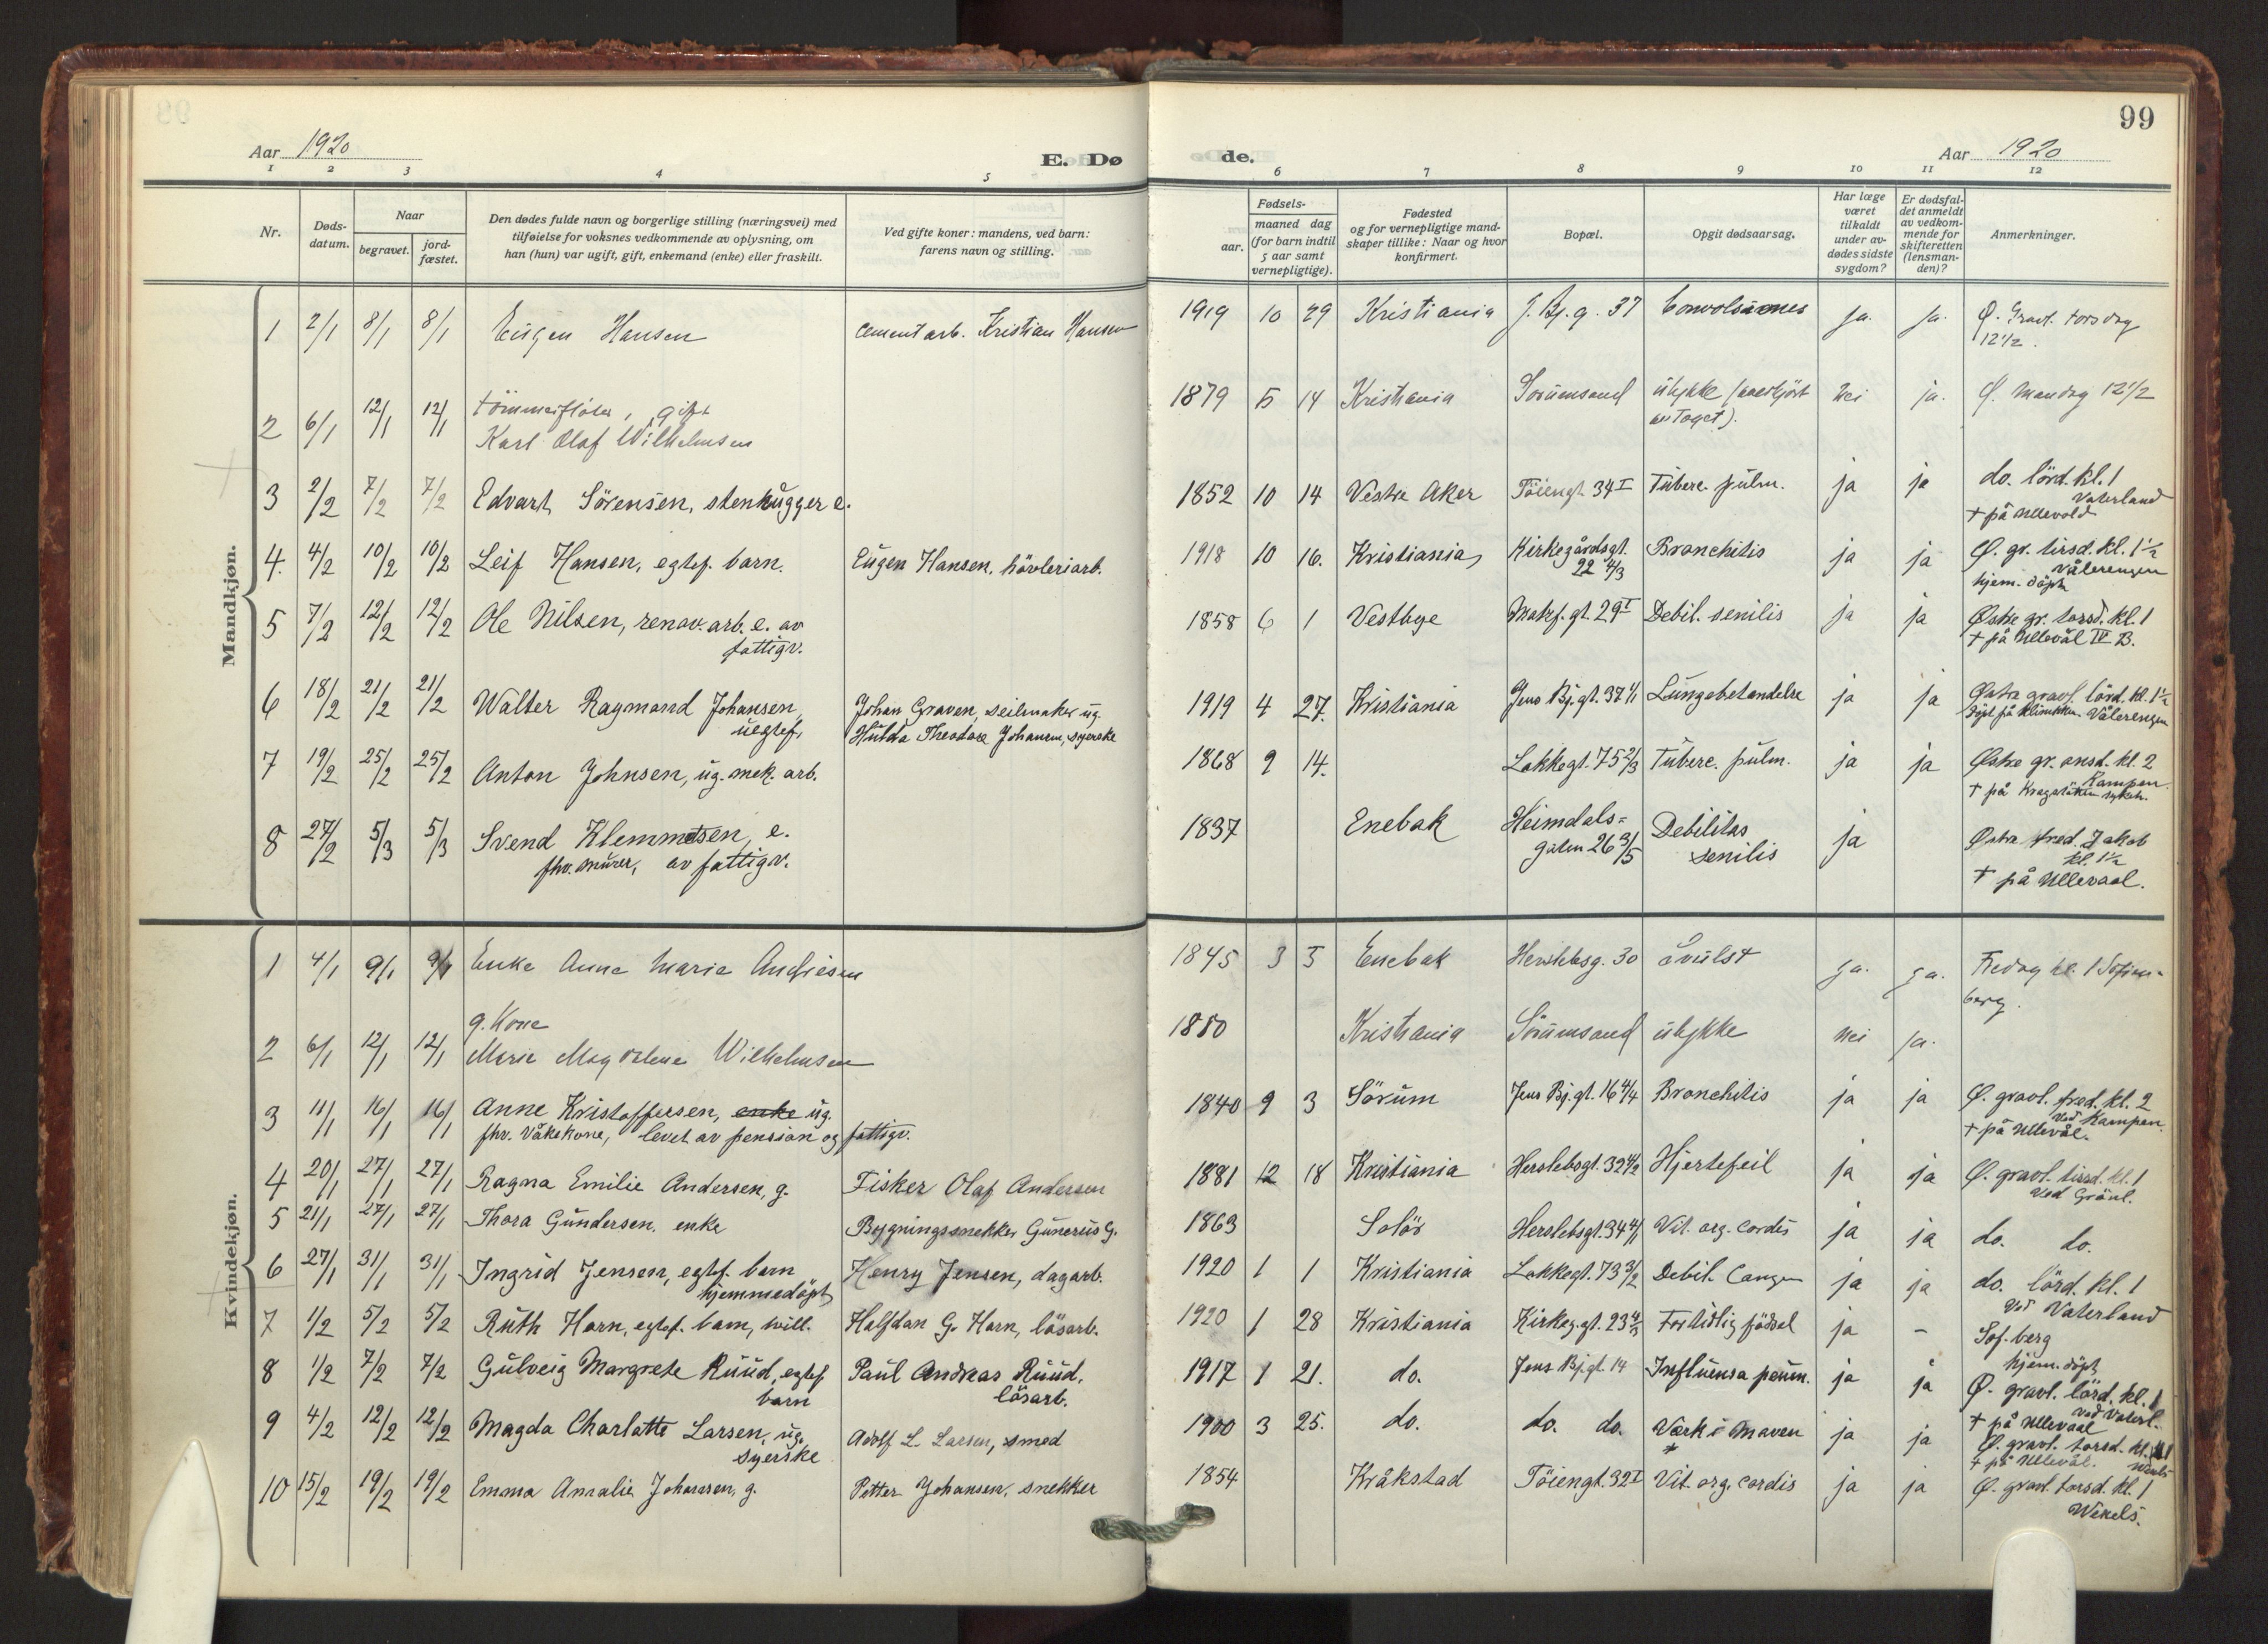 99
Aar 1920
E. Dø
de.
Aar 1920
1 2 3 4 5 6 7 8 9 10 11 12
Nr.
Dødsdatum.
Naar
begravet.
jordfæstet.
Den dødes fulde navn og borgerlige stilling (næringsvei) med
tilføielse for voksnes vedkommende av oplysning, om
han (hun) var ugift, gift, enkemand (enke) eller fraskilt.
Ved gifte koner: mandens, ved barn:
farens navn og stilling.
Fødsels-
aar.
maaned dag
(for barn indtil
5 aar samt
vernepligtige).
Fødested
og for vernepligtige mand-
skaper tillike: Naar og hvor
konfirmert.
Bopæl.
Opgit dødsaarsag.
Har læge
været
tilkaldt
under av-
dødes sidste
sygdom?
Er dødsfal-
det anmeldt
av vedkom-
mende for
skifteretten
(lensman-
den)?
Anmerkninger.
Mandkjøn.
1 2/1 8/1 8/1 Eugen Hansen cementarb. Kristian Hansen 1919 10 29 Kristiania J. Bj. g. 37 Convolsiones ja. ja. Ø. Gravl. torsdag
12 1/2.
tömmerfløter, gift
2 6/1 12/1 12/1 Karl Olaf Wilhelmsen 1879 5 14 Kristiania Sørumsand ulykke (overkjørt nei ja. Ø. Mandag 12 1/2
av Toget).
3 2/2 7/2 7/2 Edvart Sörensen, stenhugger e. 1852 10 14 Vestre Aker Töiengt. 34 I Tuberc. pulm. ja ja do. lörd. kl. 1
Vaterland
+ på Ullevold
4. 4/2 10/2 10/2 Leif Hansen, egtef. barn. Eugen Hansen, hövleriarb. 1918 10 16. Kristiania Kirkegårdsgt. Bronchitis ja ja Ø. gr. tirsd. kl. 1 1/2
22 4/3 Vålerengen
hjem. döpt
5 7/2 12/2 12/2 Ole Nilsen, renov. arb. e. av 1858 6 1 Vestbye Motzf. gt. 29 I Debil. senilis ja ja Østre gr. torsd. kl. 1
fattigv. + på Ullevål IV B.
6 18/2 21/2 21/2 Walter Raymand Johansen Johan Graven, seilmaker ug. 1919 4 27. Kristiania Jens Bj. gt. 37 4/1 Lungebetændelse ja ja Østre gravl. lörd. kl. 1 1/2
uegtef. Hulda Theodora Johansen, syerske döpt på klinikken. Vålerengen
7 19/2 25/2 25/2 Anton Johnsen, ug. mek. arb. 1868 9 14. Lakkegt. 75 2/3 Tuberc. pulm. ja ja Østre gr. onsd. kl. 2
Kampen
+ på Krogstötten sykeh.
8 27/2 5/3 5/3 Svend Klemmetsen, e. 1837 Enebak Heimdals= Debilitas ja Østre fred. Jakob
fhv. murer, av fattigv. gaten 26 3/5 senilis kl. 1 1/2
+ på Ullevaal.
Kvindekjøn.
1 4/1 9/1 9/1 Enke Anne Marie Andresen 1845 3 5 Enebak Herslebsg. 30 Svulst ja. ja. Fredag kl. 1 Sofien-
berg.
g. Kone
2 6/1 12/1 12/1 Marie Magdalene Wilhelmsen 1880 Kristiania Sörumsand ulykke nei ja.
3 11/1 16/1 16/1 Anne Kristoffersen, enke ug. 1840 9 3 Sörum Jens Bj. gt. 16 4/4 Bronchitis ja ja Ø. gravl. fred. kl. 2
fhv. Våkekone, levet av pension og fattigv. ved Kampen
+ på Ullevål.
4 20/1 27/1 27/1 Ragna Emilie Andersen, g. Fisker Olaf Andersen 1881 12 18 Kristiania Herslebsgt. 32 4/2 Hjertefeil ja ja Ø. gravl. tirsd. kl. 1
ved Grönl.
5 21/1 27/1 27/1 Thora Gundersen. enke Bygningssnekker Gunerius G. 1863 Solör Herslebsgt. 34 4/1 Vit. org. cordis ja ja do. do.
6 27/1 31/1 31/1 Ingrid Jensen, egtef. barn Henry Jensen, dagarb. 1920 1 1 Kristiania Lakkegt. 73 3/2 Debil. Congen ja ja do. lörd. kl. 1
hjemmedöpt ved Vaterland
7 1/2 5/2 5/2 Ruth Horn, egtef. barn, tvill. Halfdan G. Horn, lösarb. 1920 1 28 Kristiania Kirkeg. gt. 23 Fortidlig födsel ja – Sof. berg
hjem. döpt
8 1/2 7/2 7/2 Gulveig Margrete Ruud, egtef. Paul Andreas Ruud, 1917 1 21. do. Jens Bj. gt. 14 Influensa pneum. ja ja Ø. gravl. lörd. kl. 1
barn lösarb. ved Vaterl.
+ på Ullevaal
9 4/2 12/2 12/2 Magda Charlotte Larsen, ug. Adolf L. Larsen, smed 1900 3 25. do. do. do. Værk i Maven ja ja Ø. gravl. torsd. kl. 1
syerske + på Ullevål.
10 15/2 19/2 19/2 Emma Amalie Johansen, g. Petter Johansen, snekker 1854 Kråkstad Töiengt. 32 I Vit. org. cordis ja ja Ø. gravl. torsd. kl. 1
Wexels.